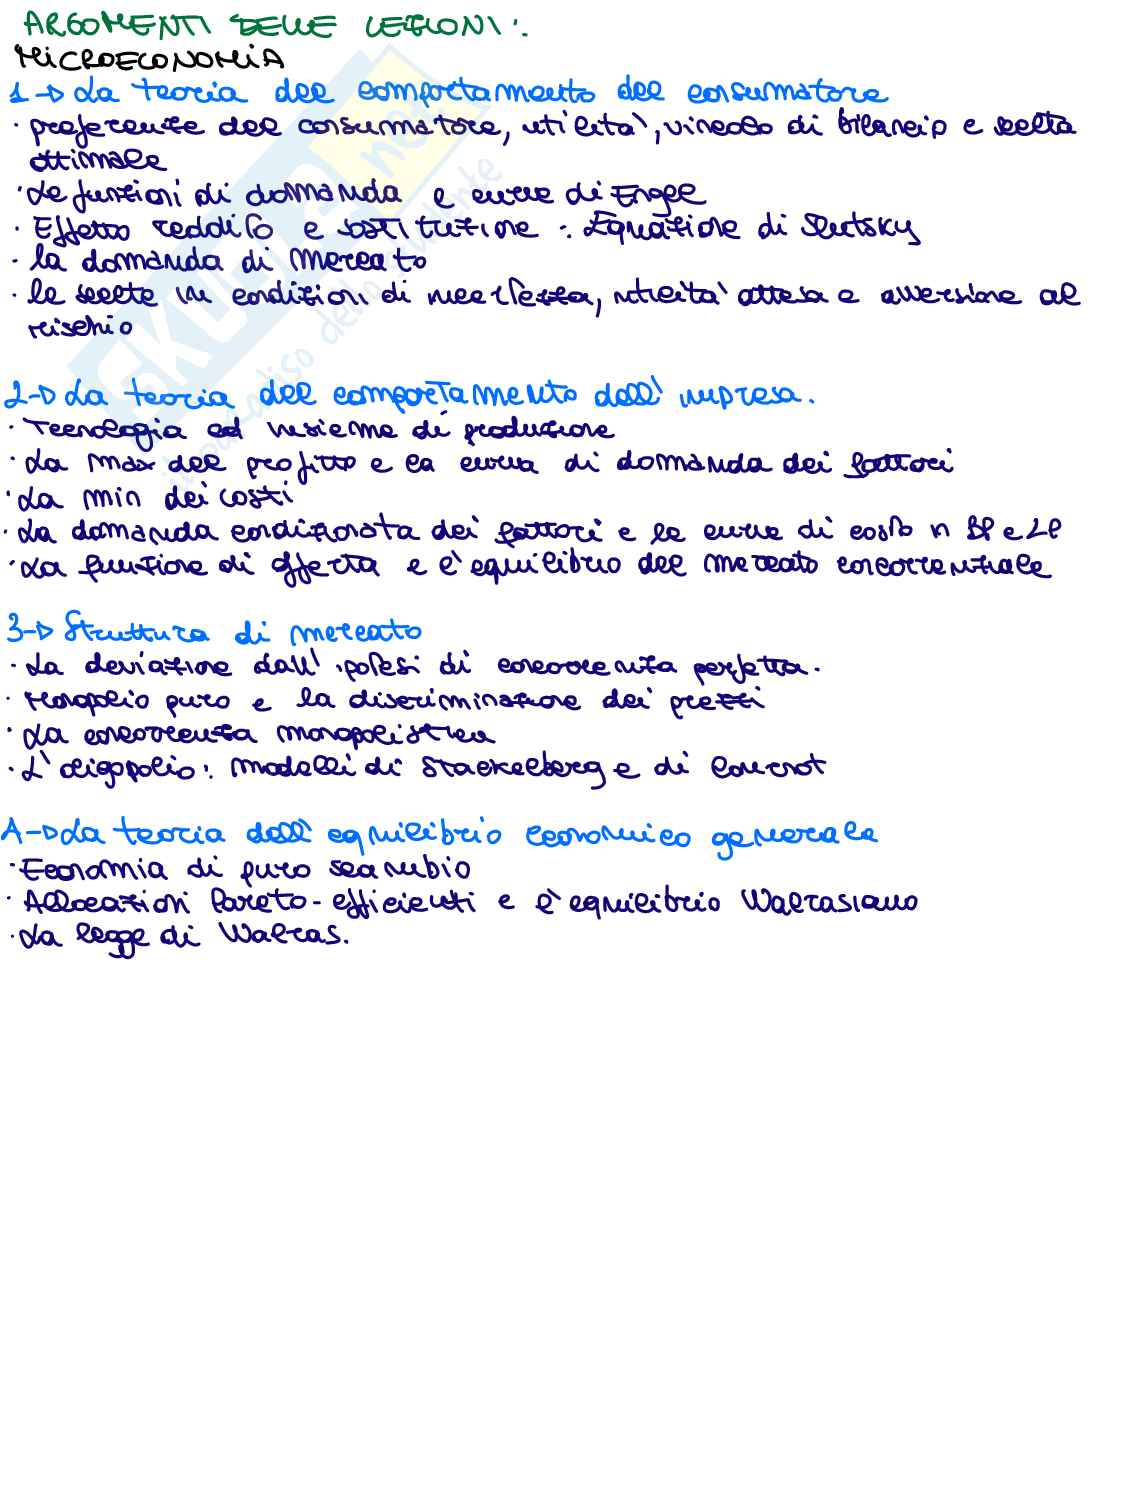 ARGOMENTI DELLE LEZIONI:
MICROECONOMIA
1→ La teoria del comportamento del consumatore
· preferenze del consumatore, utilità, vincolo di bilancio e scelta
ottimale
· Le funzioni di domanda e curve di Engel
· Effetto reddito e sostituzione: Equazione di Slutsky
· la domanda di mercato
· le scelte in condizioni di incertezza, utilità attesa e avversione al
rischio
2→ La teoria del comportamento dell'impresa.
· Tecnologia ed insieme di produzione
· La max del profitto e la curva di domanda dei fattori
· La min dei costi
· La domanda condizionata dei fattori e le curve di costo in BP e LP
· La funzione di offerta e l'equilibrio del mercato concorrenziale
3→ Struttura di mercato
· La deviazione dall'ipotesi di concorrenza perfetta.
· Monopolio puro e la discriminazione dei prezzi
· La concorrenza monopolistica
· L'oligopolio: modelli di Stackelberg e di Cournot
4→ La teoria dell'equilibrio economico generale
· Economia di puro scambio
· Allocazioni Pareto-efficienti e l'equilibrio Walrasiano
· La legge di Walras.
SKUOLA.net
il paradiso dello studente